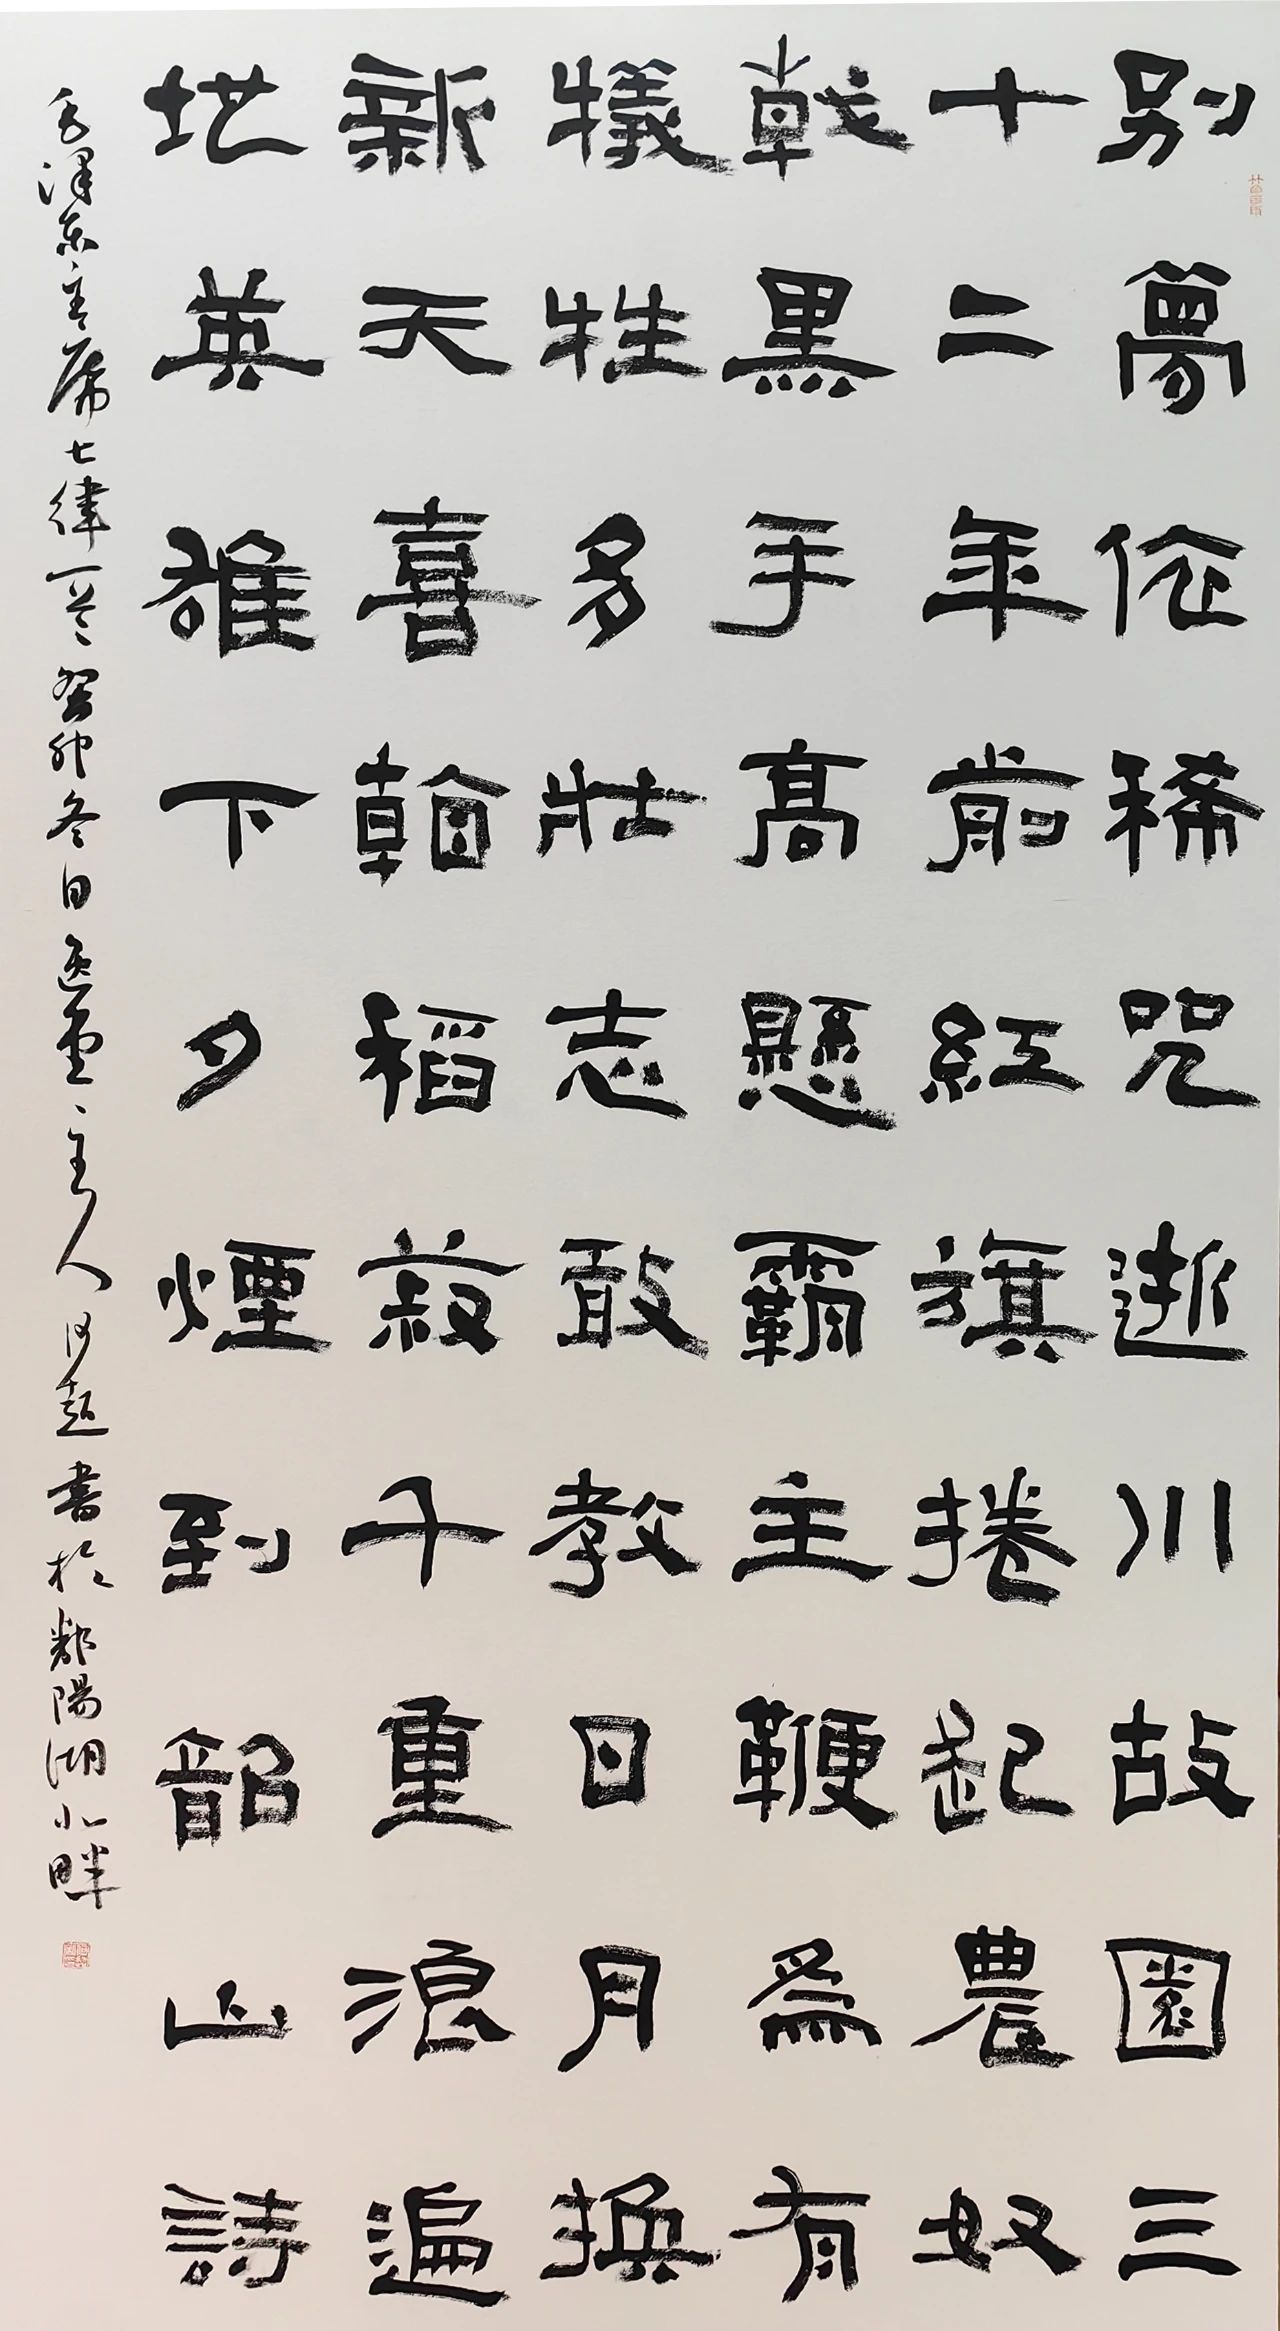 別夢依稀咒逝川故園三
十二年前紅旗捲起農奴
戟黑手高懸霸主鞭為有
犧牲多壯志敢教日月換
新天喜看稻菽千重浪遍
地英雄下夕煙到韶山詩
毛澤東主席七律一首癸卯冬日主人何超書於鄱陽湖北畔